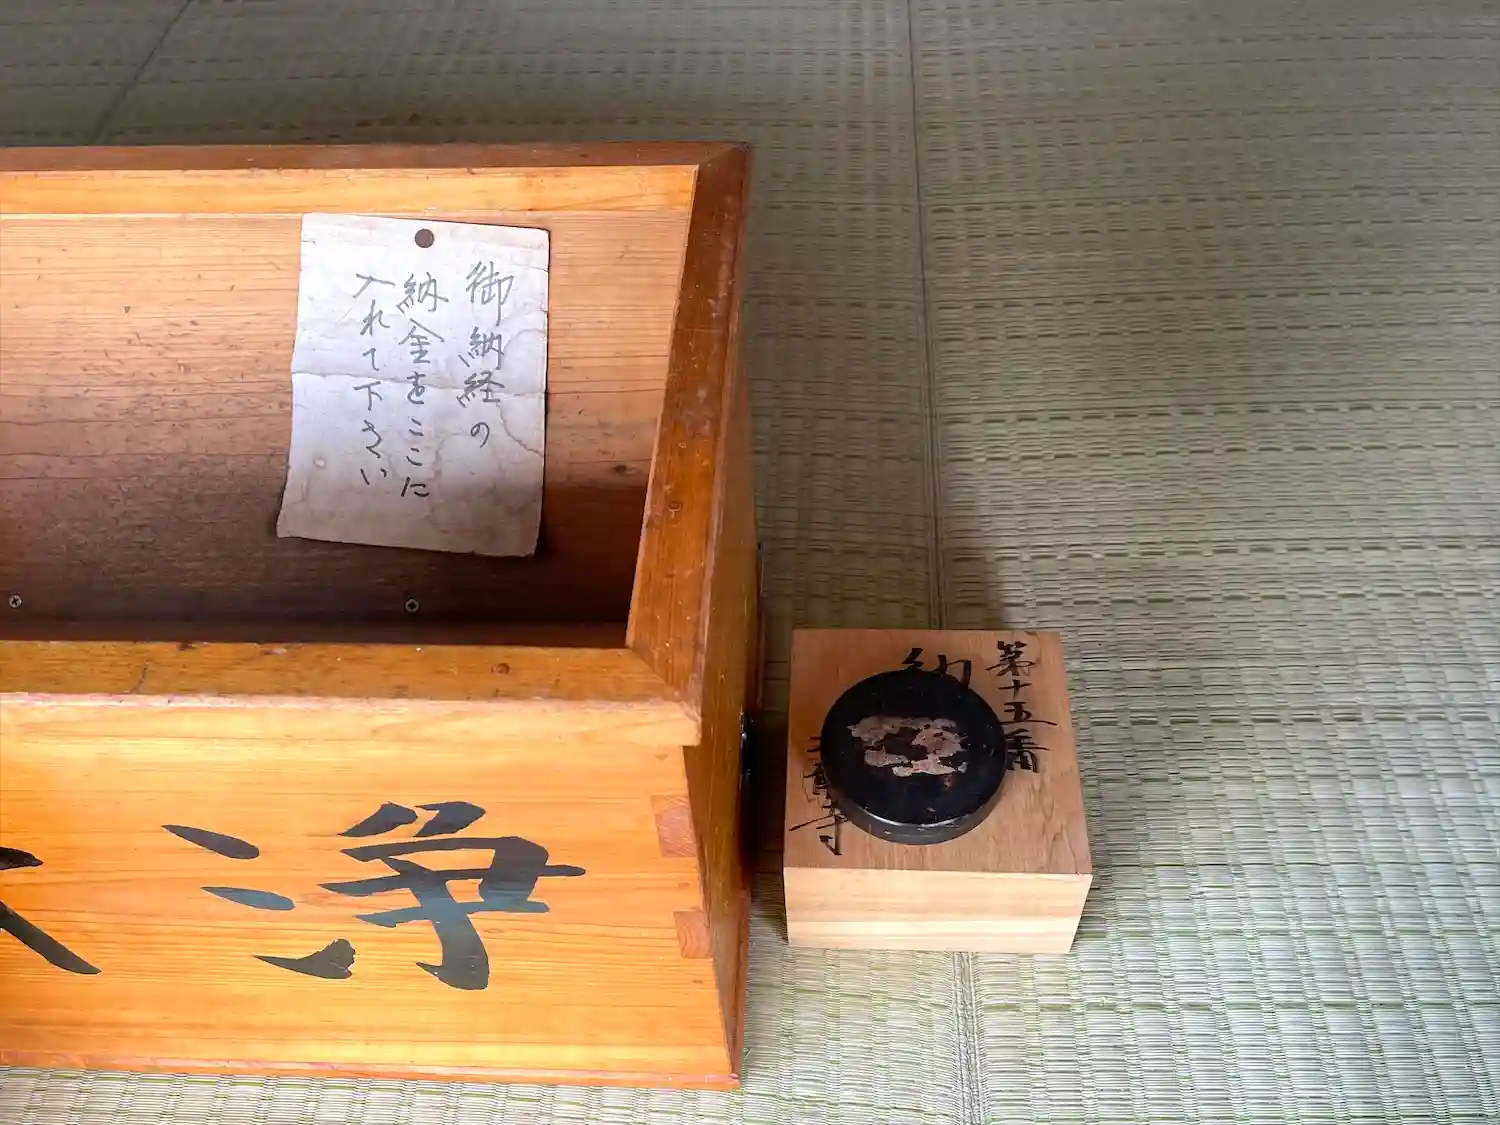 御納経の
納金をここに
入れて下さい
浄
第十五番
納